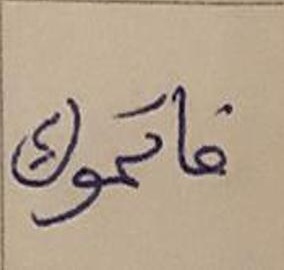 فاكموك